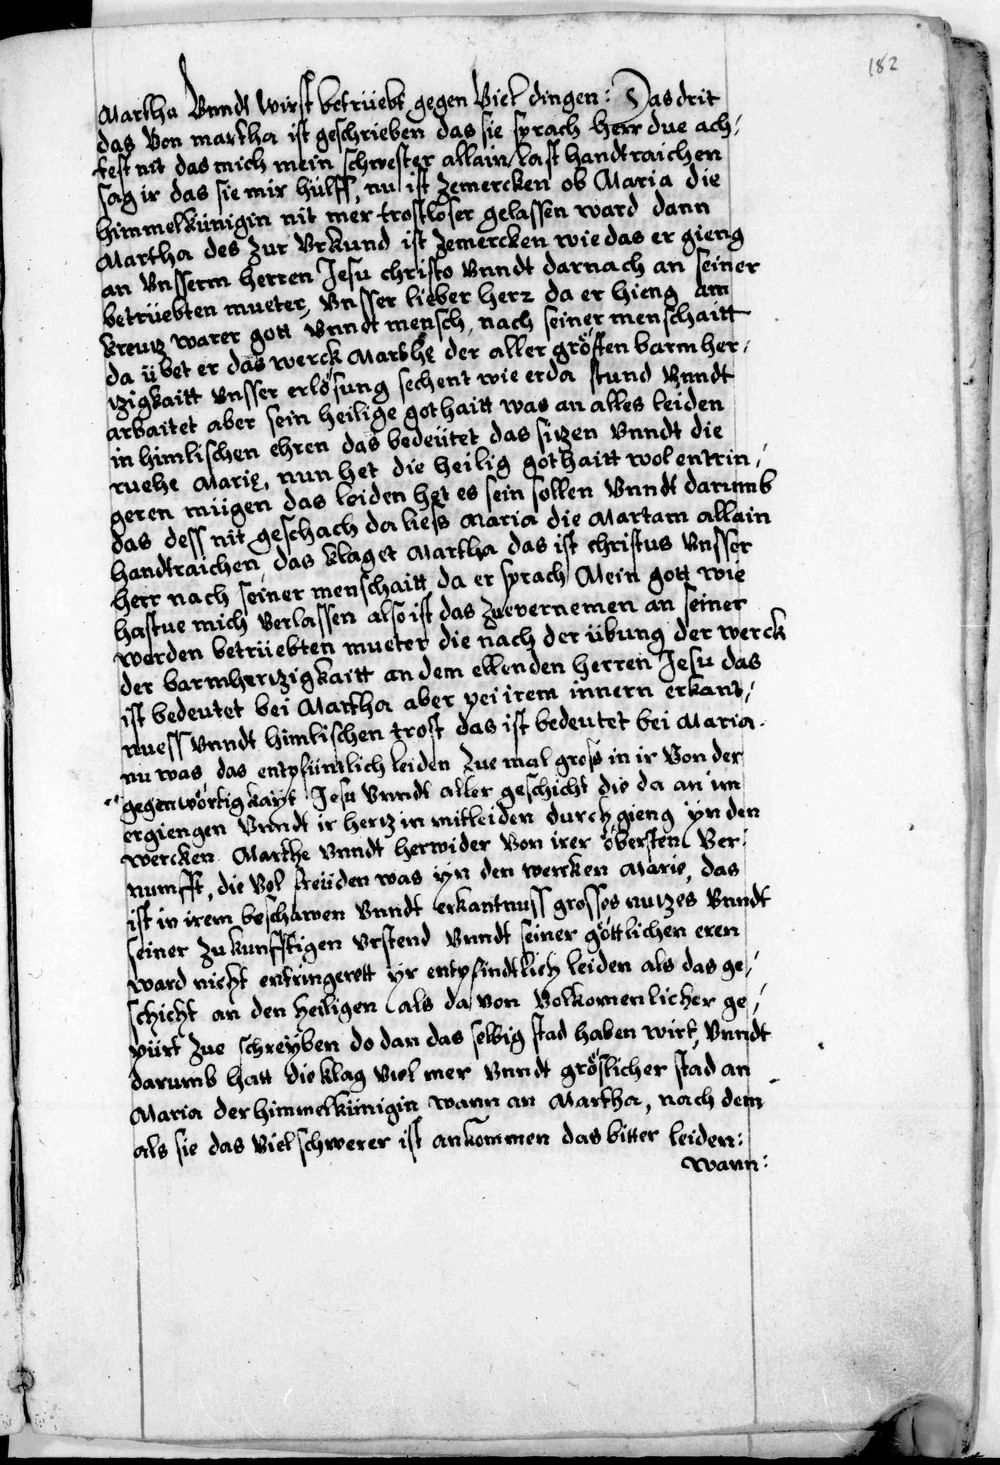 182
Martha Vnndt wirst betrüebt gegen Viel dingen: Das drit
das Von martha ist geschrieben das sie sprach herr due ach:/
test nit das mich mein schwester allain last handtraichen
sag ir das sie mir hülff, nu ist zemercken ob Maria die
himmelkünigin nit mer trostloser gelassen ward dann
Martha des zur Vrkund ist zemercken wie das er gieng
an Vnsserm herren Jesu christo Vnndt darnach an seiner
betrüebten mueter, Vnsser lieber herz da er hieng am
kreutz warer gott Vnndt mensch, nach seiner menschaitt
da übet er das werck Marthe der aller grösten barmher:/
tzigkaitt Vnsser erlösung sechent wie er da stund Vnndt
arbaitet aber sein heilige gothaitt was an alles leiden
in himlischen ehren das bedeütet das sitzen Vnndt die
ruehe Marie, nun het die heilig gothaitt wol entrin:/
geren mügen das leiden het es sein sollen Vnndt darumb
das dess nit geschach da liess Maria die Martam allain
handtraichen das klaget Martha das ist christus Vnsser
herr nach seiner menschaitt da er sprach Mein gott wie
hastue mich Verlassen also ist das zuevernemen an seiner
werden betrüebten mueter die nach der übung der werck
der barmhertzigkaitt an dem ellenden herren Jesu das
ist bedeutet bei Martha aber pei irem innern erkant:/
nuess Vnndt himlischen trost das ist bedeutet bei Maria.
nu was das entpfüntlich leiden zue mal gross in ir Von der
gegenwörtigkayt Jesu Vnndt aller geschicht die da an im
ergiengen Vnndt ir hertz in mitleiden durch gieng yn den
wercken Marthe Vnndt herwider Von irer öbersten Ver:
numfft, die Vol freüden was yn den wercken Marie, das
ist in irem beschawen Vnndt erkantnuss grosses nutzes Vnndt
seiner zukunfftigen Vrstend Vnndt seiner göttlichen eren
ward nicht entringerett yr entpfindtlich leiden als das ge:/
schicht an den heiligen als da Von Volkomenlicher ge:/
pürt zue schreyben do dan das selbig stad haben wirt, Vnndt
darumb hatt die klag Viel mer Vnndt gröslicher stad an
Maria der himmelkünigin wann an Martha, nach dem
als sie das Viel schwerer ist ankommen das bitter leiden:
wann: